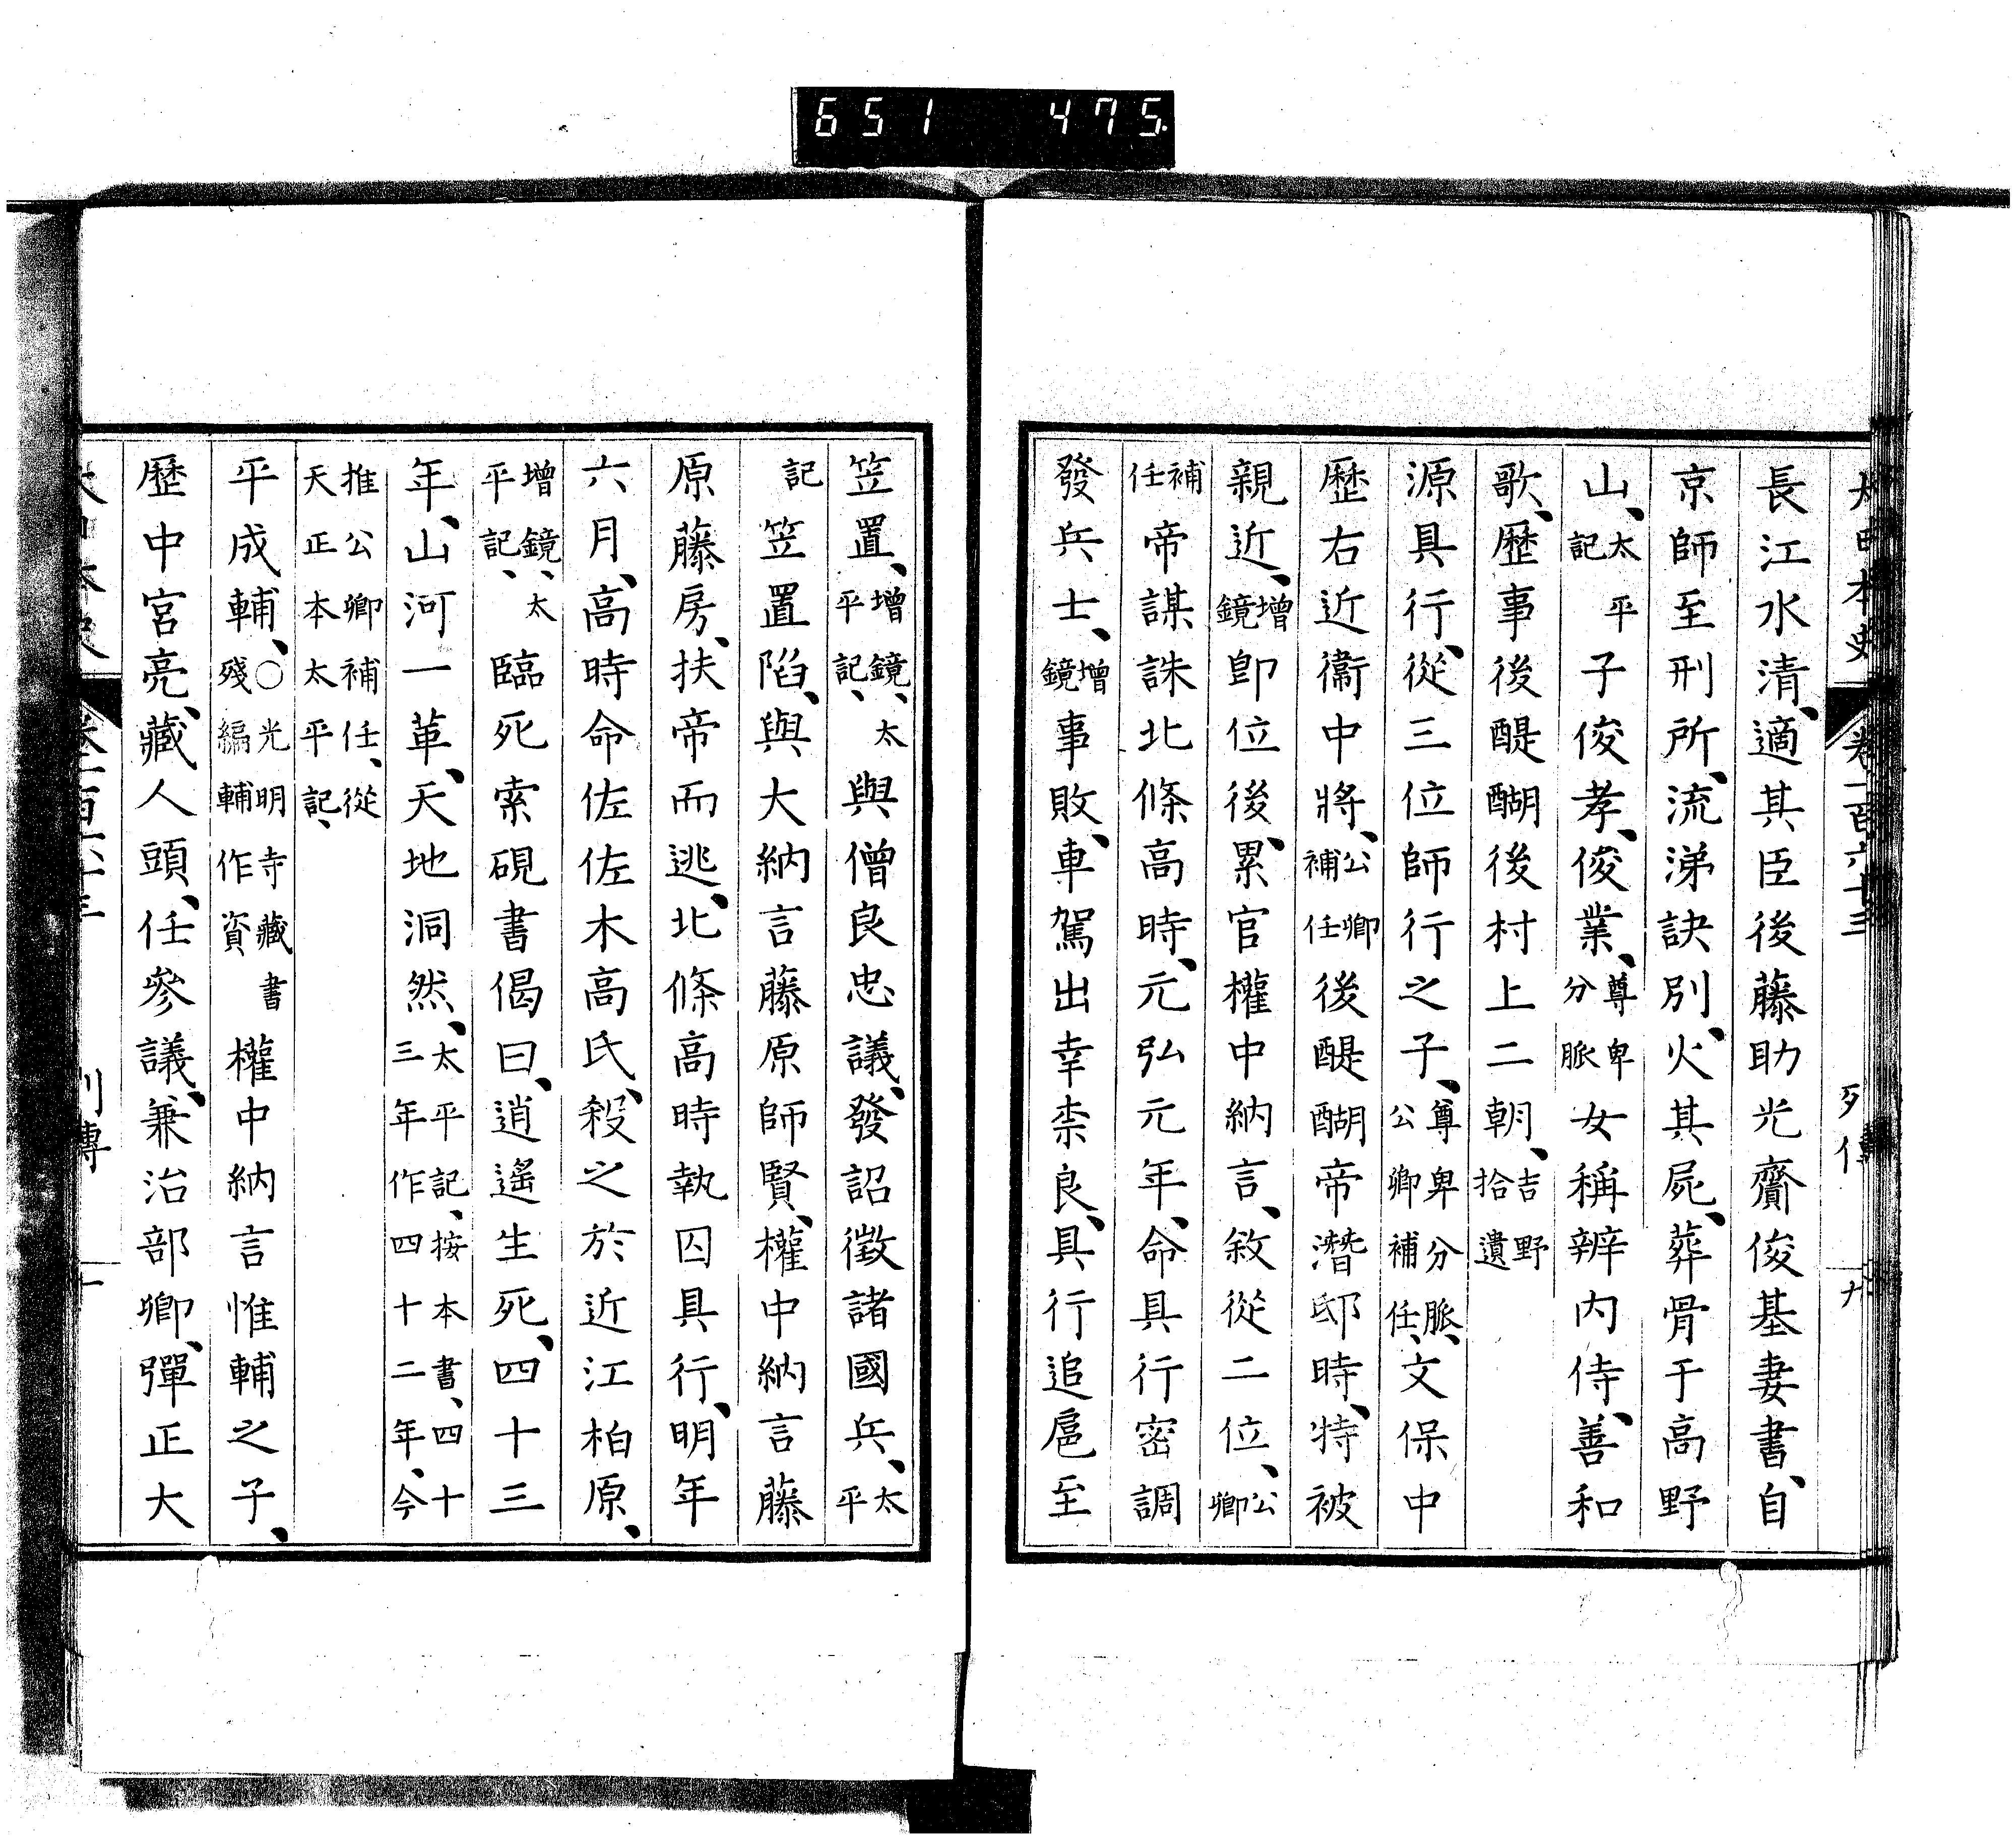 651 475.
大日本史 卷一百六十三 列傳 九
長江水清、適其臣後藤助光齎俊基妻書、自
京師至刑所、流涕訣別、火其屍、葬骨于高野
山、太平記 平子俊孝、俊業、尊卑分脈 女稱辨内侍、善和
歌、歷事後醍醐後村上二朝、吉野拾遺
源具行、從三位師行之子、尊卑分脈、公卿補任、文保中
歷右近衞中將、公卿補任 後醍醐帝潛邸時、特被
親近、增鏡 卽位後、累官權中納言、敘從二位、公卿
補任 帝謀誅北條高時、元弘元年、命具行密調
發兵士、增鏡 事敗、車駕出幸柰良、具行追扈至
笠置、增鏡、太平記、 與僧良忠議、發詔徵諸國兵、太平
記 笠置陷、與大納言藤原師賢、權中納言藤
原藤房、扶帝而逃、北條高時執囚具行、明年
六月、高時命佐佐木高氏、殺之於近江柏原、
增鏡、太平記、 臨死索硯書偈曰、逍遙生死、四十三
年、山河一革、天地洞然、太平記、按本書、四十三年作四十二年、今
推公卿補任、從天正本太平記、
平成輔、○光明寺藏書殘編輔作資 權中納言惟輔之子、
歷中宮亮、藏人頭、任參議、兼治部卿、彈正大
列傳